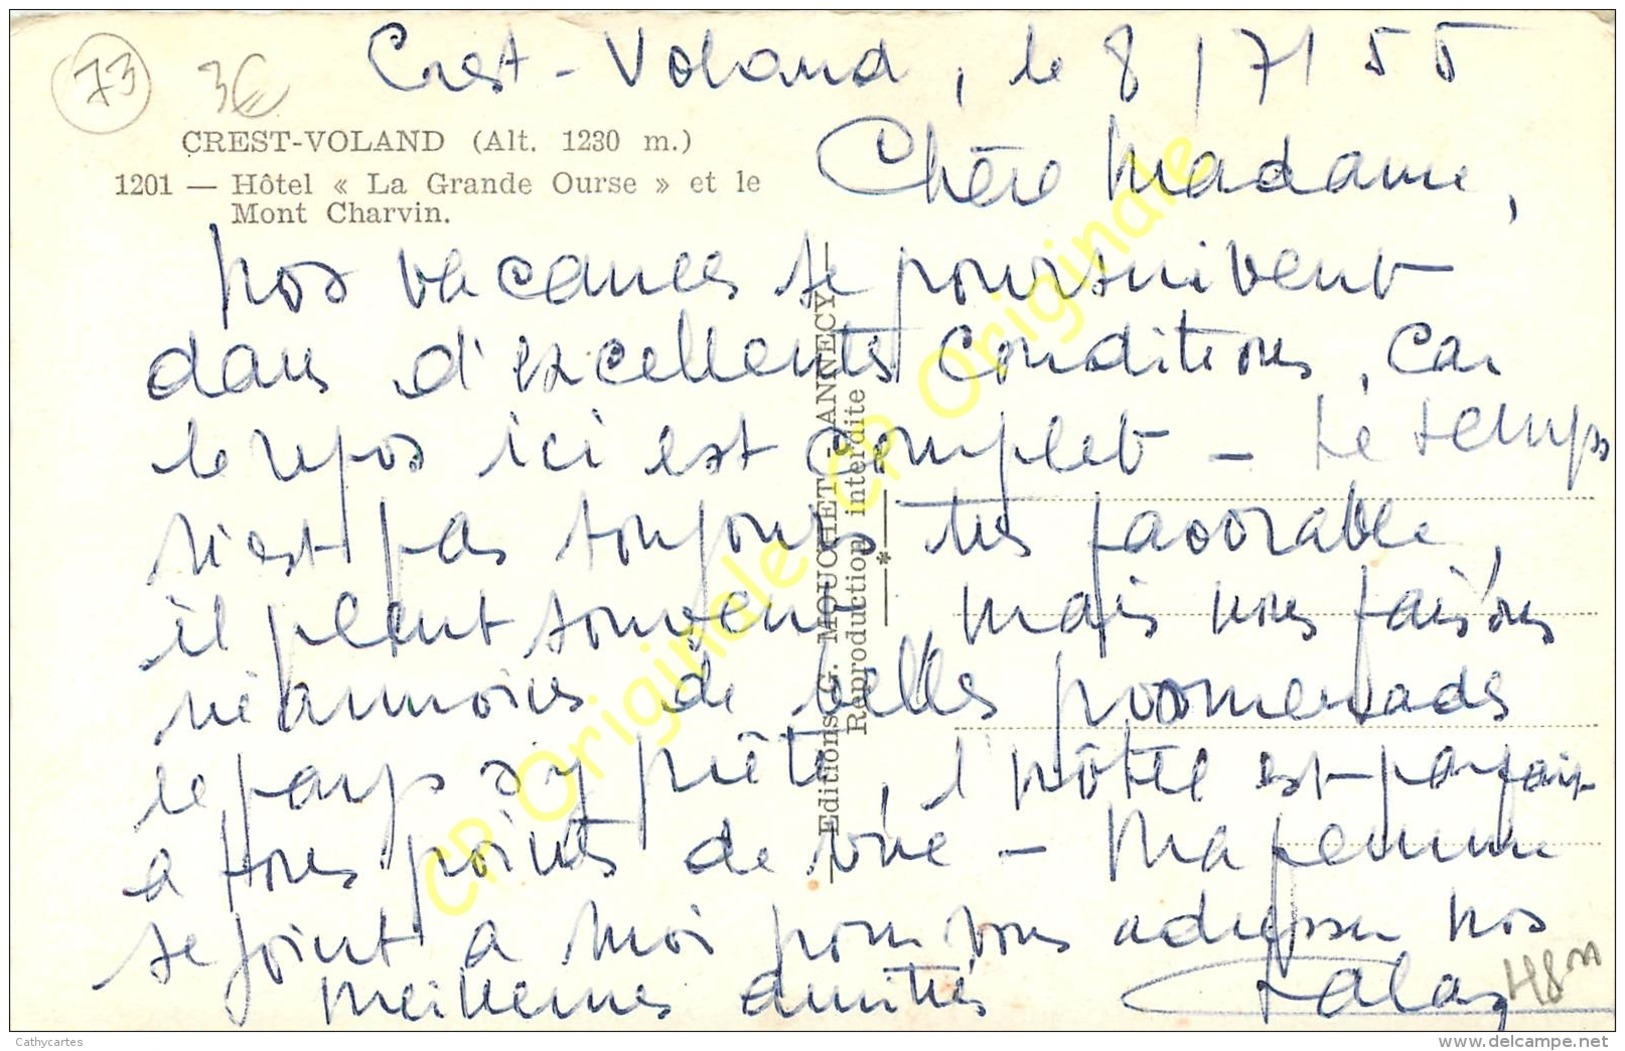 73
3€
Crest-Voland, le 8/7/55
CREST-VOLAND (Alt. 1230 m.)
1201 — Hôtel « La Grande Ourse » et le
Mont Charvin.
Chère Madame,
Nos vacances se poursuivent
dans d'excellentes conditions, car
le repos ici est complet - Le temps
n'est pas toujours très favorable,
il pleut souvent, mais nous faisons
néanmoins de belles promenades
le pays s'y prête, l'hôtel est parfait
à tous points de vue - Ma femme
se joint à moi pour vous adresser nos
meilleures amitiés
Editions G. MOUCHET - ANNECY
Reproduction interdite
CP Originale CP Originale
Cathycartes
delcampe.net